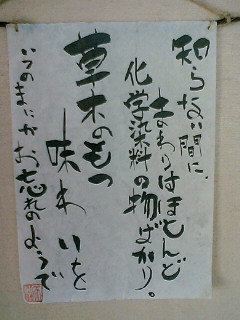 知らない間に、
まわりはほとんど
化学染料の物ばかり。
草木のもつ
味わいを
いつのまにかお忘れのようで